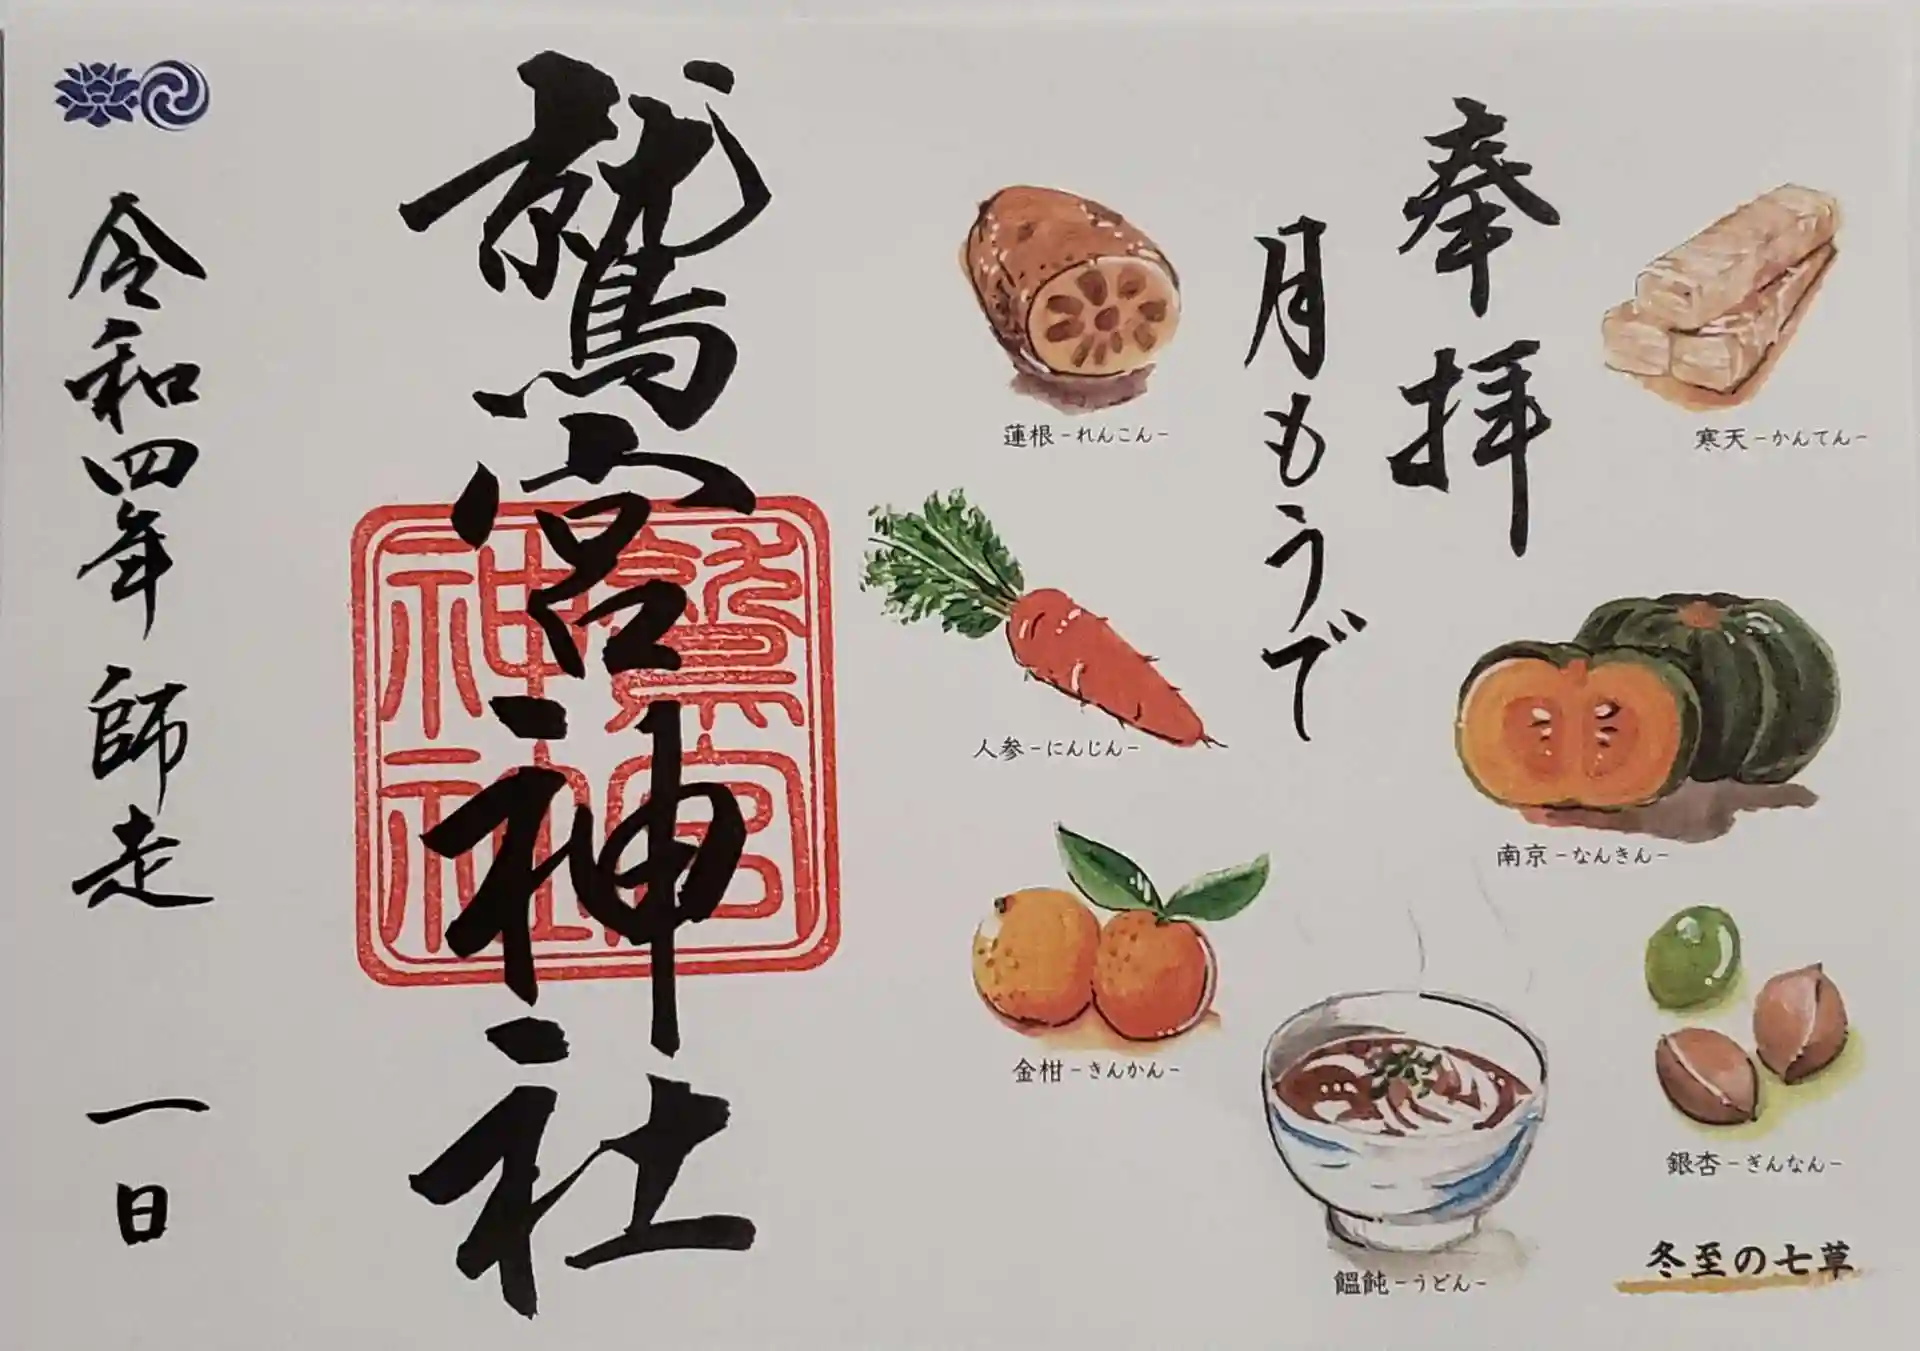 奉拝
月もうで
寒天-かんてん-
蓮根-れんこん-
人参-にんじん-
南京-なんきん-
金柑-きんかん-
銀杏-ぎんなん-
饂飩-うどん-
冬至の七草
鷲宮神社
鷲宮
神社
令和四年 師走 一日